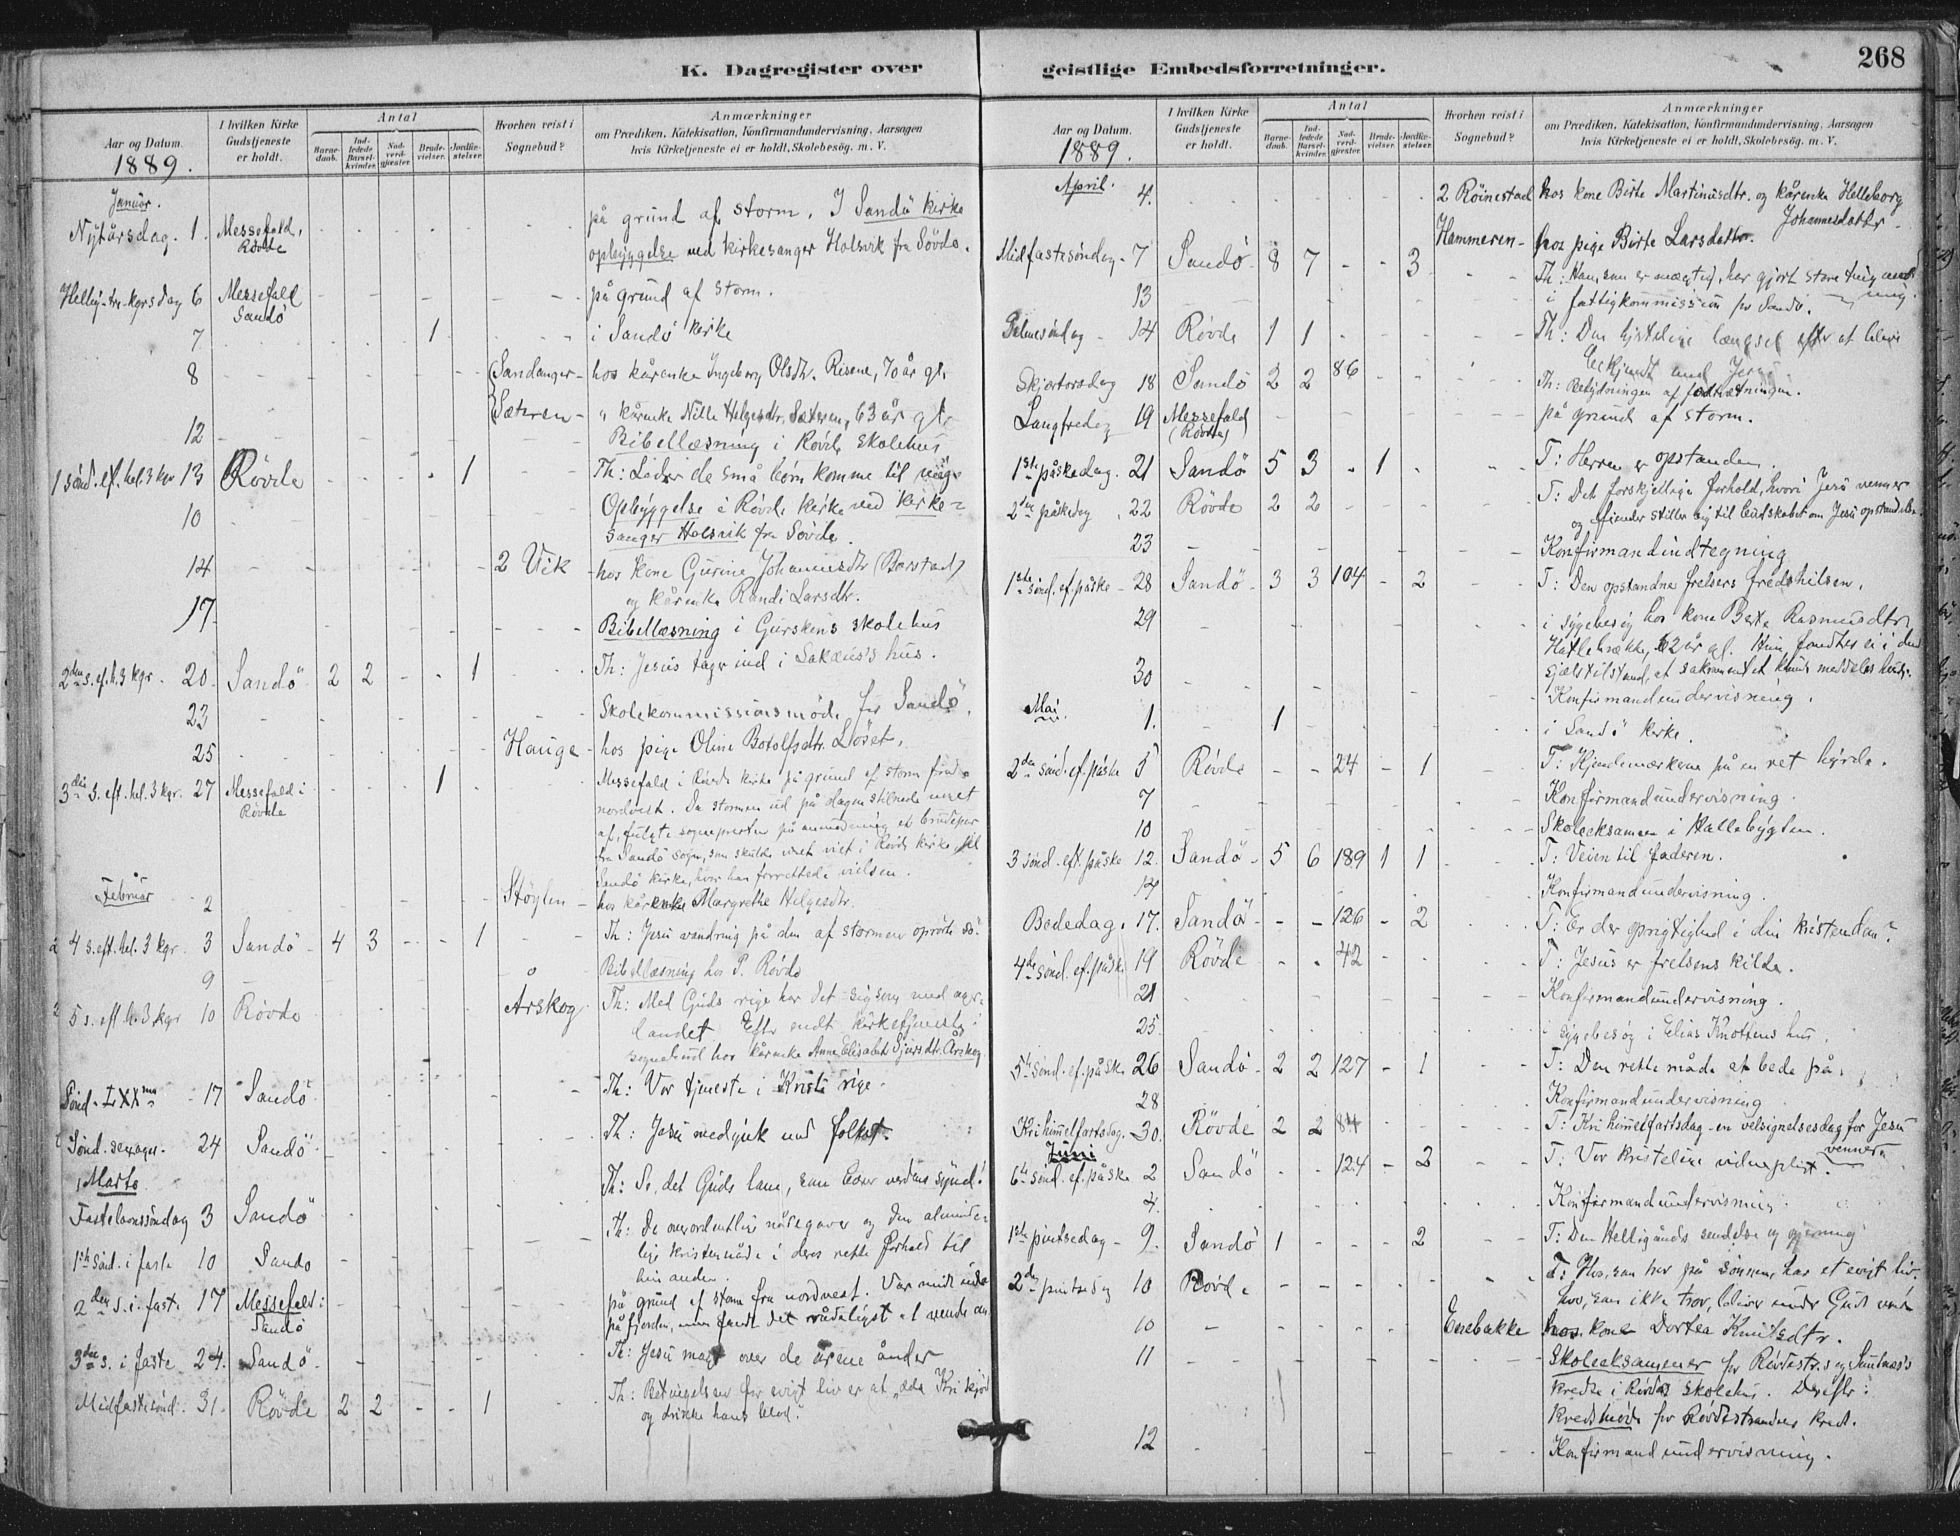 268
K. Dagregister over geistlige Embedsforretninger.
Aar og Datum.
1889.
I hvilken Kirke Gudstjeneste er holdt.
Antal
Barnedaab.
Indledede Barselkvinder.
Nadverdgjæster.
Brudevielser.
Jordfæstelser.
Hvorhen reist i Sognebud?
Anmærkninger
om Prædiken, Katekisation, Konfirmandundervisning, Aarsagen
hvis Kirketjeneste ei er holdt, Skolebesøg. m. V.
Januar.
på grund af storm. I Sandö kirke
Nytårsdag. 1. Messefald, Rövde
opbyggelse ved kirkesanger Holsvik fra Sövde.
Hellig-tre-kgrsdag 6 Messefald Sandö på grund af storm.
7 1 i Sandö kirke
8 Sandanger hos kårenke Ingeborg Olsdtr. Risene, 70 år gl.
Sæteren " kårenke Nille Helgesdtr. Sæteren, 63 år gl.
12 Bibellæsning i Rövde skolehus
1 sönd. ef. hel. 3 kgr 13 Rövde 1 Th: Lader de små börn komme til mig.
10 Opbyggelse i Rövde kirke ved kirke-
sanger Holsvik fra Sövde.
14 2 Vik hos kone Gurine Johannesdtr (Barstad)
og kårenke Randi Larsdtr.
17. Bibellæsning i Gurskens skolehus
2den s. ef. h. 3 kgr. 20 Sandö 2 2 1 Th: Jesus tager ind i Sakæus's hus.
23 Skolekommissionsmöde for Sandö.
25 Hauge hos pige Oline Botolfsdtr. Löset.
3die s. eft. hel. 3 kgr. 27 Messefald i Rövde 1 Messefald i Rövde kirke på grund af storm fra
nordvest. Da stormen ud på dagen stilnede noget
af, fulgte sognepresten på anmodning et brudepar
fra Sandö sogn, som skulde været viet i Rövde kirke, til
Sandö kirke, hvor han forrettede vielsen.
Februar
2 Stöylen hos kårenke Margrethe Helgesdtr.
4 s. eft. hel. 3 kgr. 3 Sandö 4 3 1 Th: Jesu vandring på den af stormen oprörte sö.
9 Bibellæsning hos P. Rövde
5 s. eft h. 3 kgr 10 Rövde Årskog Th: Med Guds rige har det sig som med ager-
landet. Efter endt kirketjeneste i
sognebud hos kårenke Anne Elisabet Sjursdtr. Årskog.
Sönd. LXXma 17 Sandö Th: Vor tjeneste i Kristi rige.
Sönd. sexages. 24 Sandö Th: Jesu medynk med folket.
Marts
Th: Se, det Guds lam, som bær verdens synd!
Fastelavnssöndag 3 Sandö
Th: De overordentlige nådegaver og den alminde-
lige kristennåde i deres rette forhold til
hinanden.
1ste sönd. i faste 10 Sandö
2den s. i faste 17 Messefald: Sandö på grund af storm fra nordvest. Var midt ude
på fjorden, men fandt det rådeligst at vende om
3die s. i faste 24. Sandö Th: Jesu magt over de urene ånder
Midfastesönd. 31. Rövde 2 2 1 Th: Betingelsen for evigt liv er at "æde Kristi kjöd
og drikke hans blod."
Aar og Datum.
1889.
I hvilken Kirke Gudstjeneste er holdt.
Antal
Barnedaab.
Indledede Barselkvinder.
Nadverdgjæster.
Brudevielser.
Jordfæstelser.
Hvorhen reist i Sognebud?
Anmærkninger
om Prædiken, Katekisation, Konfirmandundervisning, Aarsagen
hvis Kirketjeneste ei er holdt, Skolebesög. m. V.
April.
4. 2 Röinestad hos kone Birte Martinusdtr. og kårenke Helleborg
Johannesdatter
Hammeren hos pige Birte Larsdatter.
Midfastesöndag 7 Sandö 8 7 3 Th: Han, som er mægtig, har gjort store ting mod mig.
13 i fattigkommission for Sandö.
Palmesöndag 14 Rövde 1 1 Th: Den hjertelige længsel efter at blive
bekjendt med Jesus
Skjærtorsdag 18 Sandö 2 2 86 Th: Betydningen af fodtvætningen.
Langfredag 19 Messefald (Rövde) på grund af storm.
1ste påskedag 21 Sandö 5 3 1 T: Herren er opstanden.
2den påskedag 22 Rövde 2 2 T: Det forskjellige forhold, hvori Jesu venner
og fiender stiller sig til budskabet om Jesu opstandelse
23 Konfirmandindtegning
1ste sönd. ef. påske 28 Sandö 3 3 104 2 T: Den opstandne frelsers fredshilsen.
29 i sygebesög hos kone Berte Rasmusdtr
Hatlebrække, 62 år gl. Hun fandtes ei i den
sjælstilstand, at sakramentet kunde meddeles hende.
30 Konfirmandundervisning.
Mai
1. 1 i Sandö kirke.
2den sönd. ef. påske 5 Rövde 24 1 T: Kjendemærkerne på en ret hyrde.
7 Konfirmandundervisning.
10 Skoleeksamen i Hallebygden.
3 sönd. eft. påske 12. Sandö 5 6 189 1 1 T: Veien til faderen.
14 Konfirmandundervisning.
Bededag. 17. Sandö 126 2 T: Er der oprigtighed i din kristendom?
4de sönd. ef. påske 19 Rövde 42 T: Jesus er frelsens kilde.
21 Konfirmandundervisning.
25. i sygebesög i Elias Knottens hus.
5te sönd. ef. påske 26 Sandö 2 2 127 1 T: Den rette måde at bede på.
28 Konfirmandundervisning
Kri himmelfartsdag 30. Rövde 2 2 84 T: Kri himmelfartsdag - en velsignelsesdag for Jesu venner
Juni
6te sönd. ef. påske 2 Sandö 124 2 T: Vor kristelige vidnepligt.
4. Konfirmandundervisning.
1ste pintsedag 9. Sandö 1 2 T: Den Helligånds sendelse og gjerning
2den pintsedag 10 Rövde T: Hvo, som tror på Sönnen, har et evigt liv.
hvo, som ikke tror, bliver under Guds vrede
10 Enebakke hos kone Dortea Knutsdtr.
11 Skoleeksamener for Rövdestr.s og
kredse i Rövde skolehus. Derefter:
kredsmöde for Rövdestrandens kreds.
12 Konfirmandundervisning.